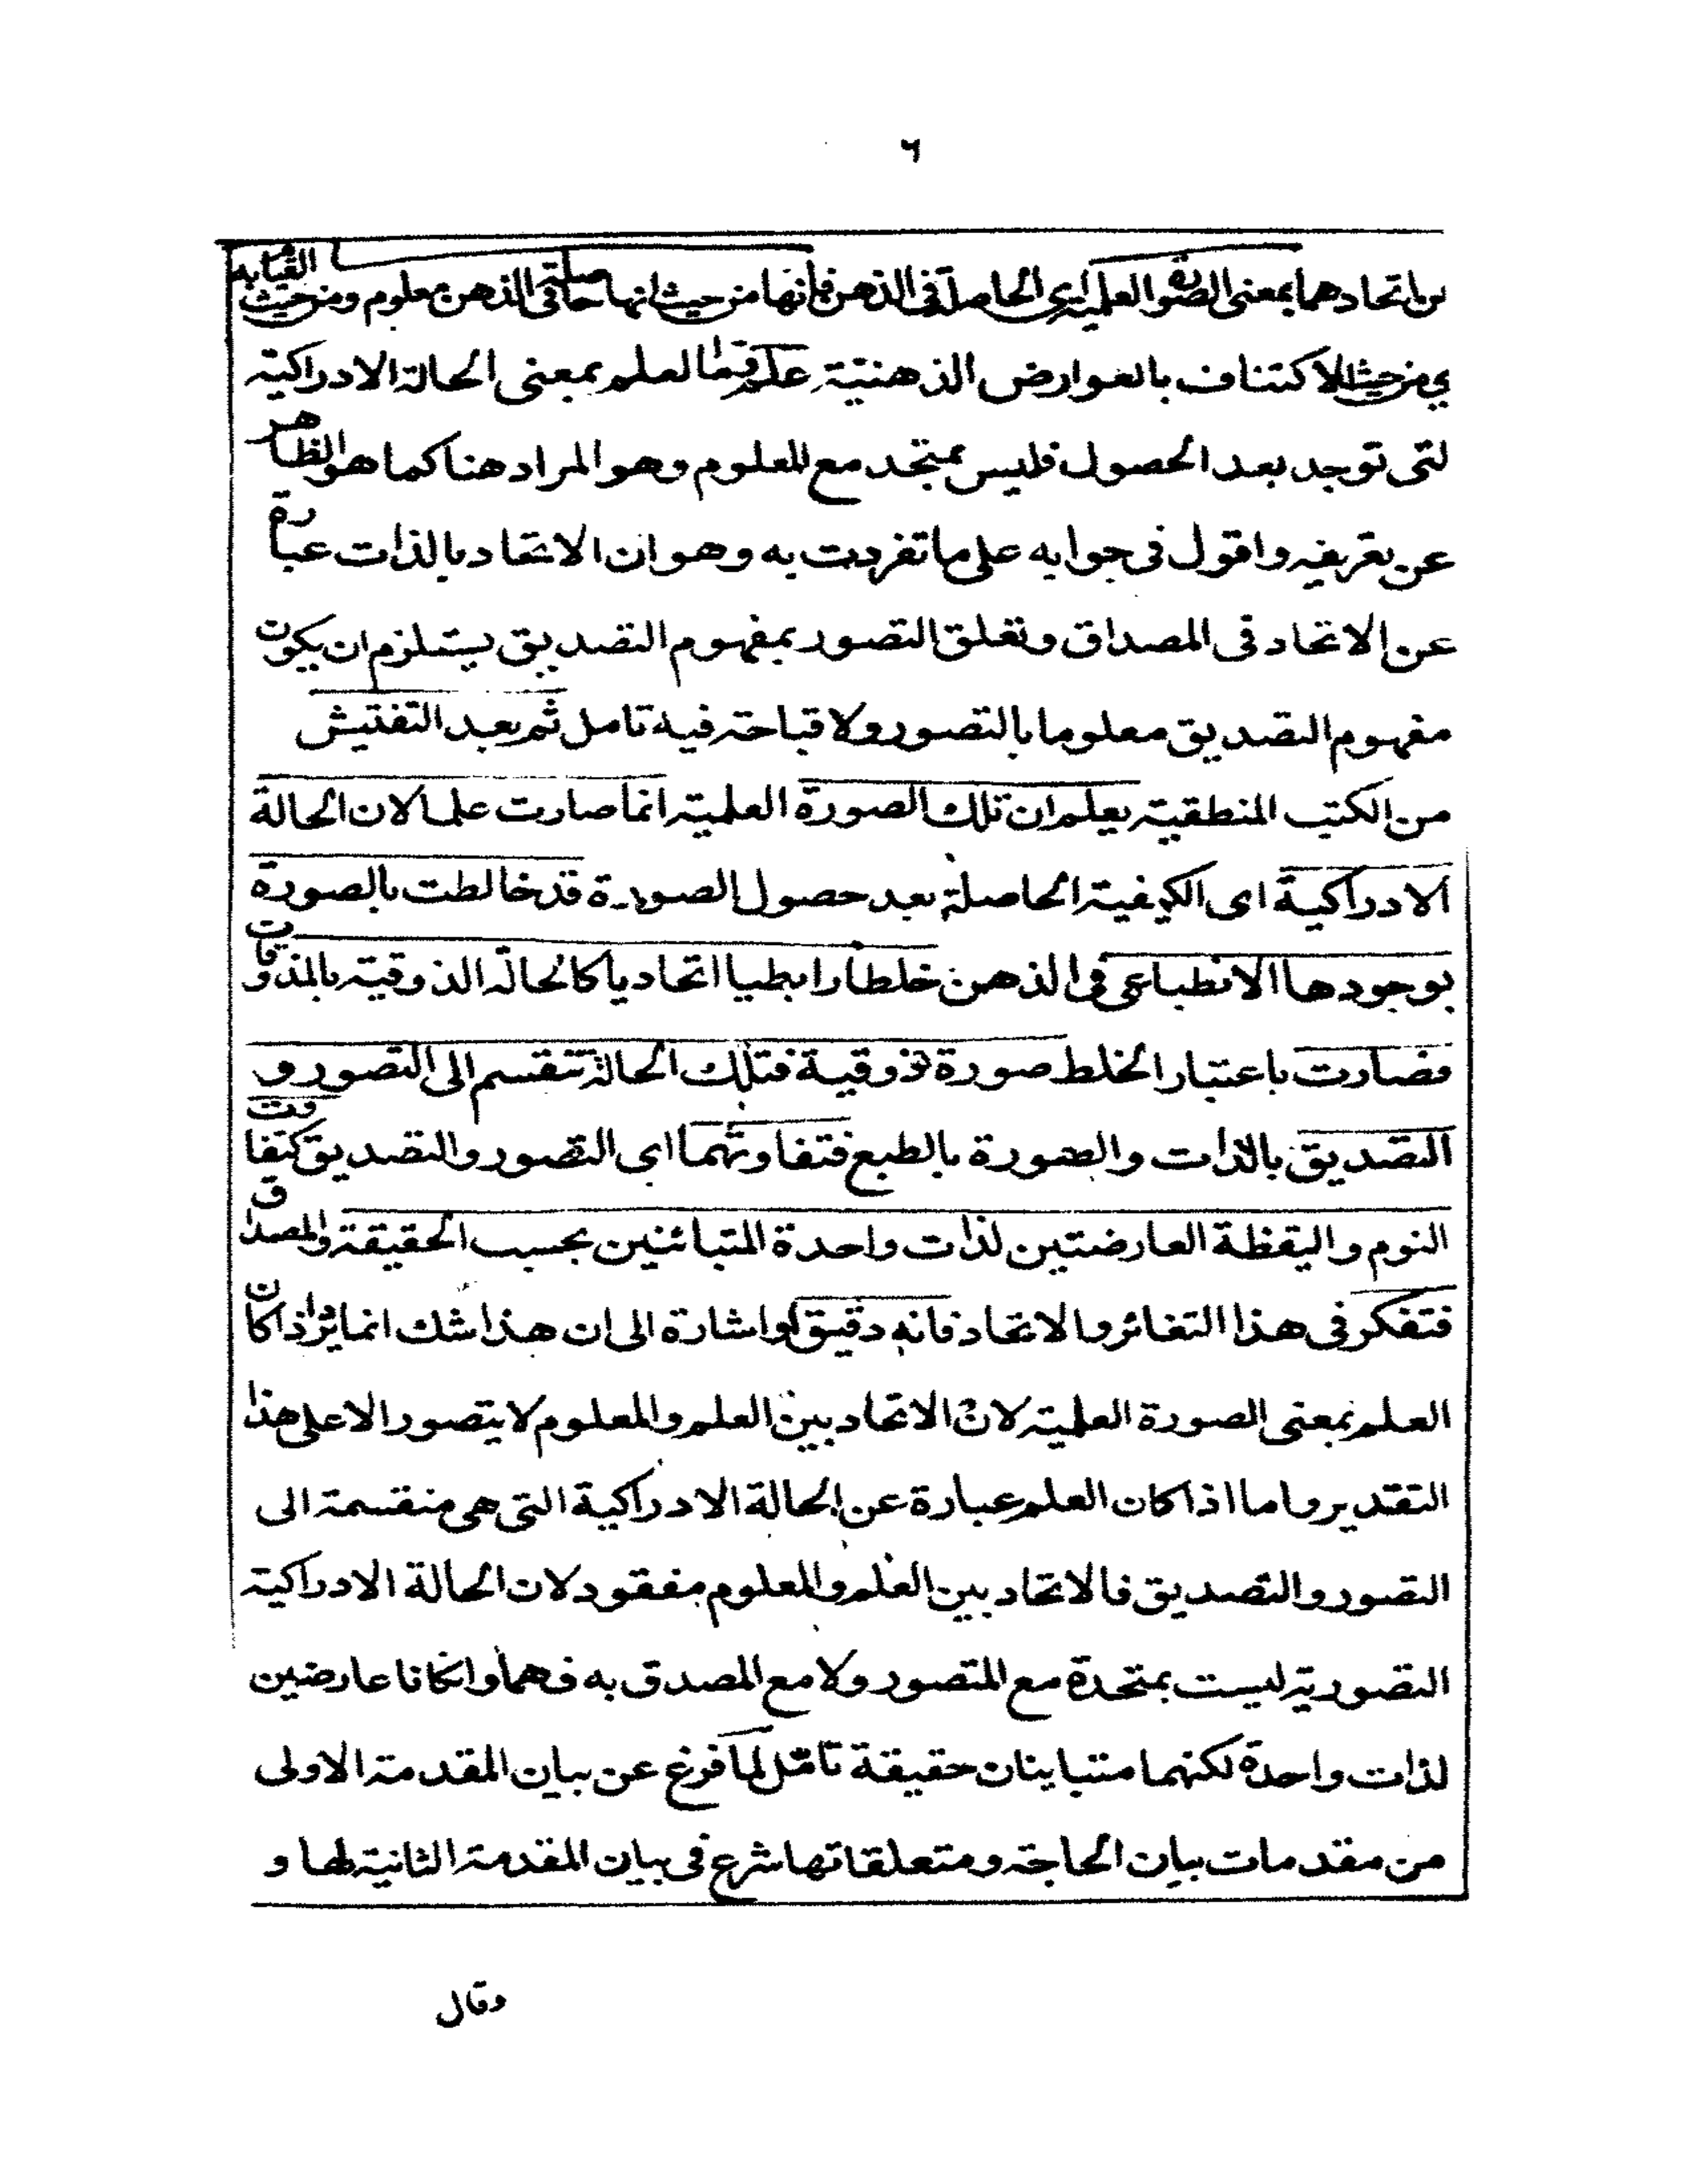 ٦
اتحادهما بمعنى الصورة العلمية اى الحاصلة فى الذهن فانها من حيث انها حاصلة فى الذهن معلوم ومن حيث القيام به
من حيث الاكتناف بالعوارض الذهنية علم واما العلم بمعنى الحالة الادراكية
لتى توجد بعد الحصول فليس بمتحد مع المعلوم وهو المراد هنا كما هو الظاهر
عن تعريفه واقول فى جوابه على ما تفردت به وهو ان الاتحاد بالذات عبارة
عن الاتحاد فى المصداق وتعلق التصور بمفهوم التصديق يستلزم ان يكون
مفهوم التصديق معلوما بالتصور ولا قباحة فيه تامل ثم بعد التفتيش
من الكتب المنطقية يعلم ان تلك الصورة العلمية انما صارت علما لان الحالة
الادراكية اى الكيفية الحاصلة بعد حصول الصورة قد خالطت بالصورة
بوجودها الانطباعى فى الذهن خلطا رابطيا اتحاديا كالحالة الذوقية بالمذوقات
فصارت باعتبار الخلط صورة ذوقية فتلك الحالة تنقسم الى التصور و
التصديق بالذات والصورة بالطبع فتفاوتهما اى التصور والتصديق كتفاوت
النوم واليقظة العارضتين لذات واحدة المتبائنين بحسب الحقيقة والمصداق
فتفكر فى هذا التغائر والاتحاد فانه دقيق او اشارة الى ان هذا شك انما يرد اذا كان
العلم بمعنى الصورة العلمية لان الاتحاد بين العلم والمعلوم لا يتصور الا على هذا
التقدير واما اذا كان العلم عبارة عن الحالة الادراكية التى هى منقسمة الى
التصور والتصديق فالاتحاد بين العلم والمعلوم مفقود لان الحالة الادراكية
التصورية ليست بمتحدة مع المتصور ولا مع المصدق به فهما وانكانا عارضين
لذات واحدة لكنهما متباينان حقيقة تامل لما فرغ عن بيان المقدمة الاولى
من مقدمات بيان الحاجة ومتعلقاتها شرع فى بيان المقدمة الثانية لها و
وقال